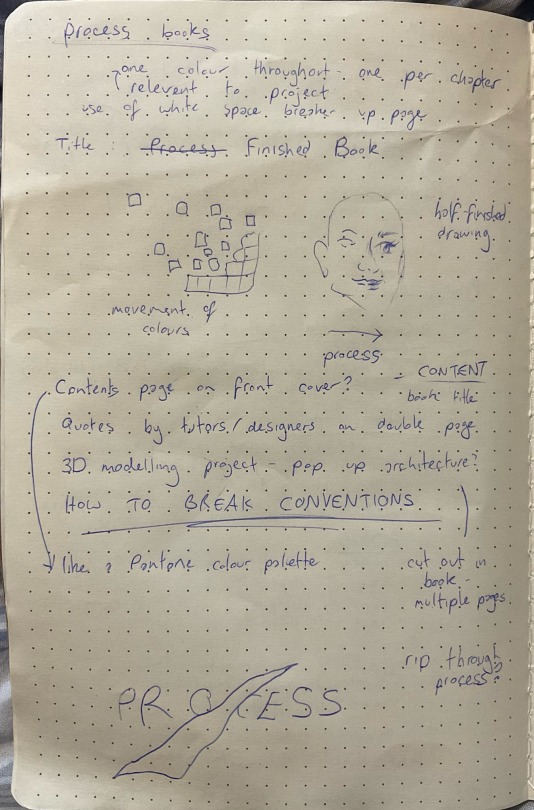 Process books
one colour throughout - one per chapter
relevent to project
use of white space breaks up page
Title : Process Finished Book
half-finished
drawing.
movement of
colours
process
Contents page on front cover?
- CONTENT
book title
Quotes by tutors / designers on double page
3D modelling project - pop up architecture?
HOW TO BREAK CONVENTIONS
like a Pantone colour palette
cut out in
book -
multiple pages
rip through
process?
PROCESS